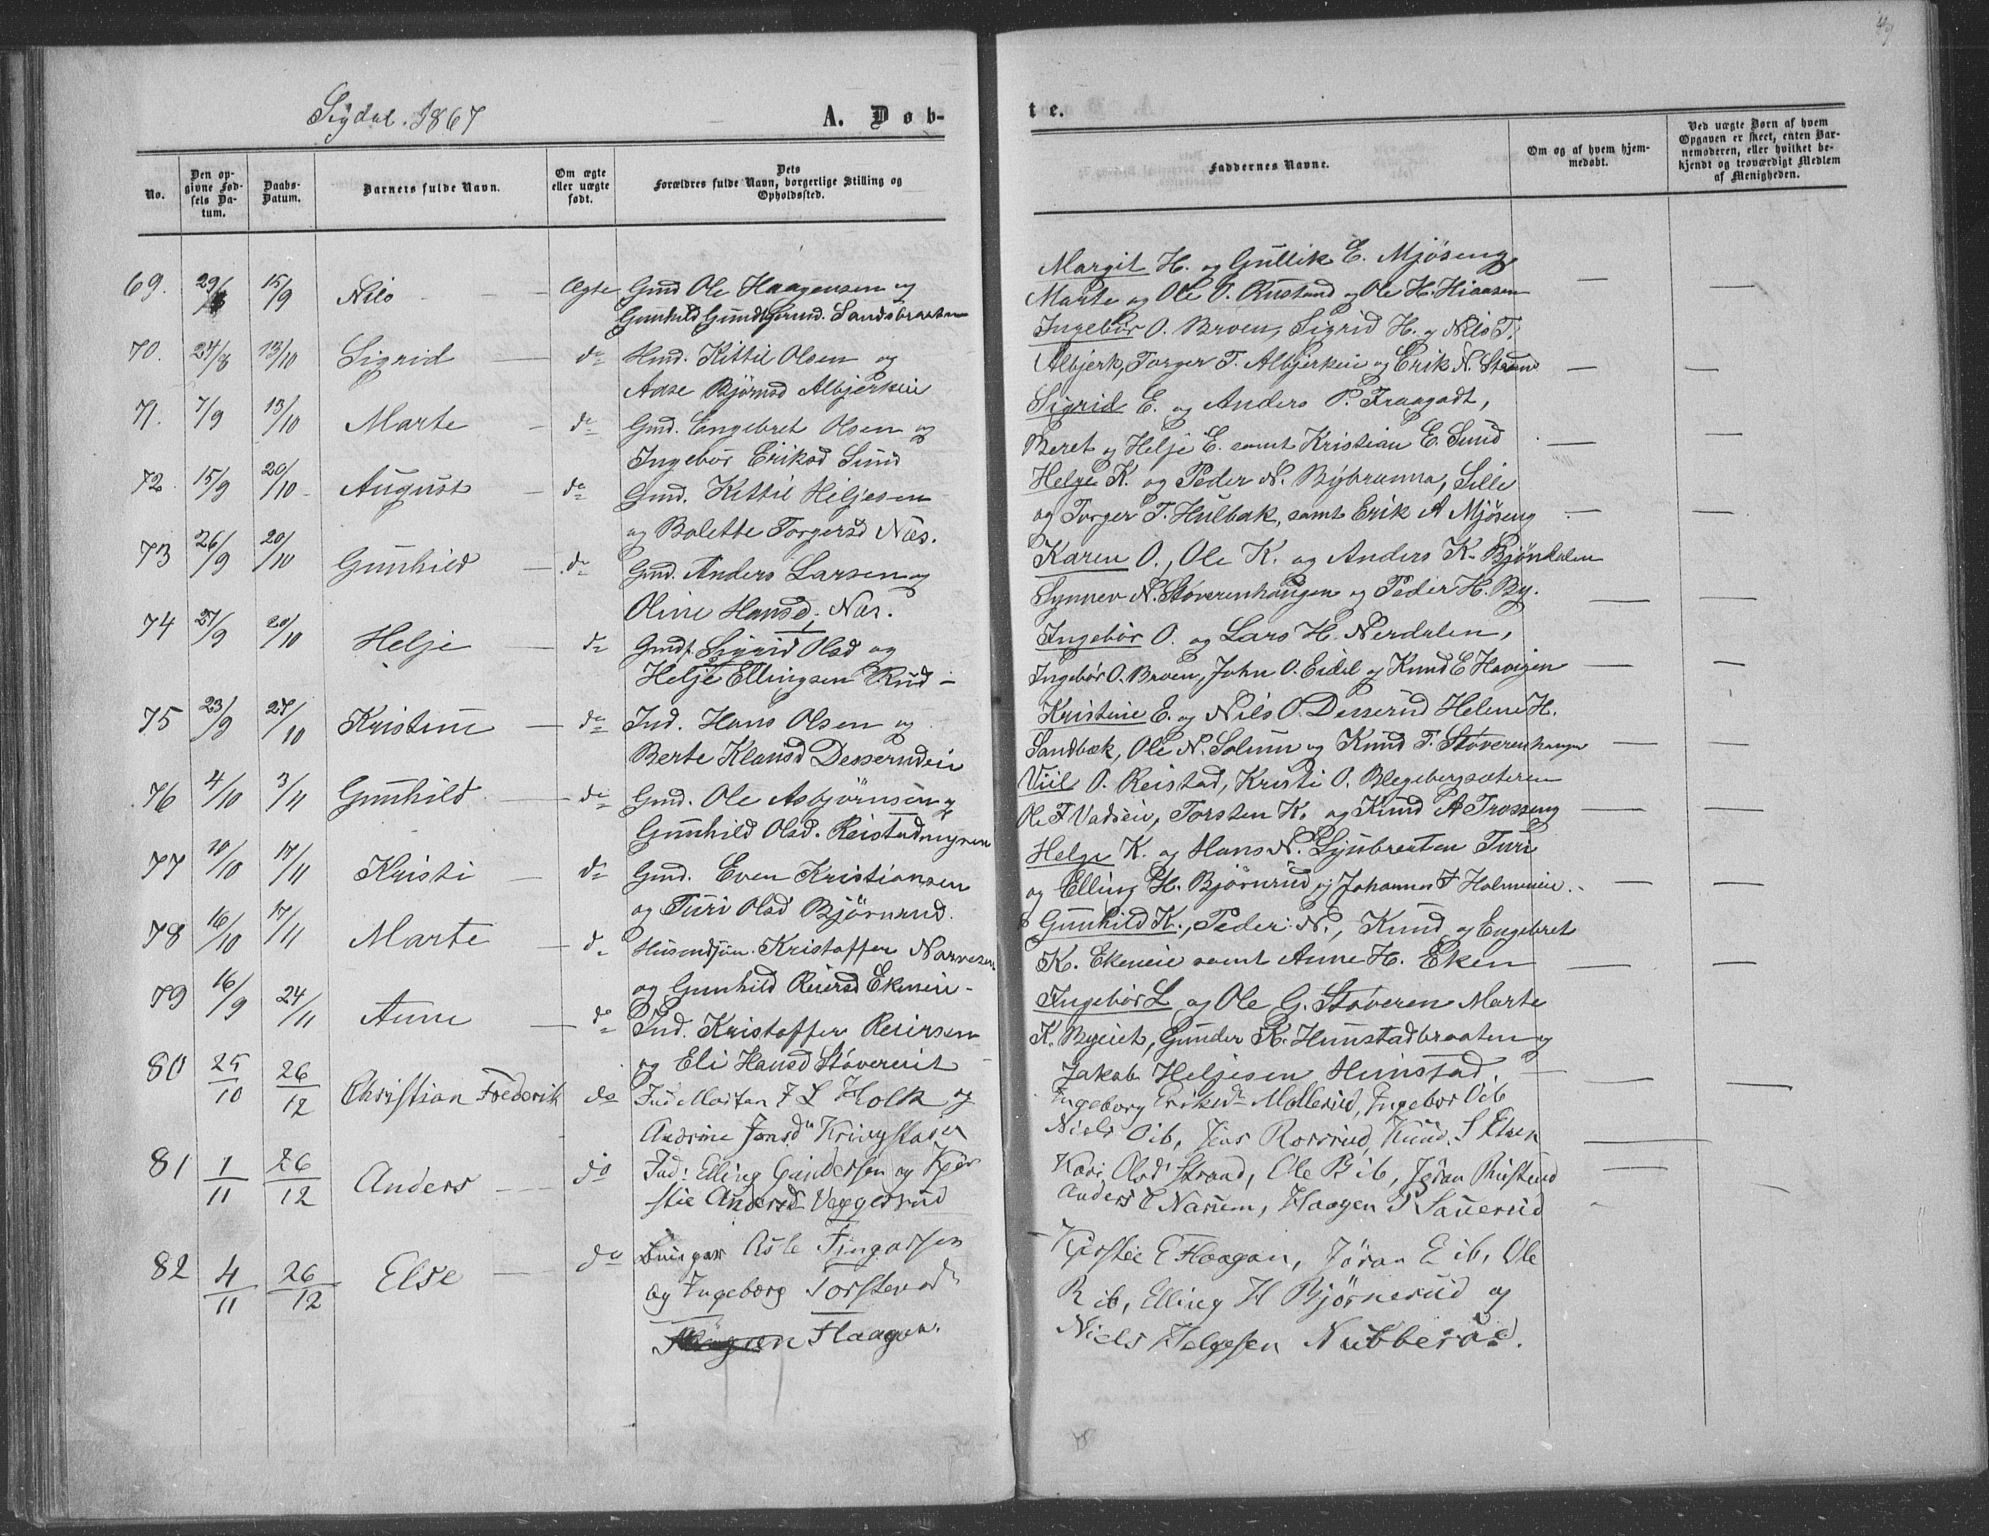 Sigdal. 1867
A. Døb-
te.
No.
Den op-
givne Fød-
sels Da-
tum.
Daabs-
Datum.
Barnets fulde Navn.
Om ægte
eller uægte
født.
Dets
Forældres fulde Navn, borgerlige Stilling og
Opholdssted.
Faddernes Navne.
Om og af hvem hjem-
medøbt.
Ved uægte Børn af hvem
Opgaven er skeet, enten Bar-
nemoderen, eller hvilket be-
kjendt og troværdigt Medlem
af Menigheden.
69. 29/8 15/9 Nils Ægte Gmd Ole Haagensen og
Gunhild Sandsbraaten
Margit H. og Gullik E. Mjøseng
Marte og Ole O. Rustand og Ole H. Hiaasen
70. 24/8 13/10 Sigrid do Hmd. Kittil Olsen og
Aase Bjørnsd Albjerkeie
Ingebør O. Broen, Sigrid H. og Nils T.
Albjerk, Torger T. Albjerkeie og Erik N. Strand
71. 7/9 13/10 Marte do Gmd. Engebret Olsen og
Ingebør Eriksd Sund
Sigrid E. og Anders P. Fraagodt,
Beret og Helje E. samt Kristian E. Sund
72. 15/9 20/10 August do Gmd. Kittil Heljesen
og Bolette Torgersd Næs.
Helge K. og Peder N. Bybrunna, Sille
og Torger T. Hulbak, samt Erik A Mjøseng
73 26/9 20/10 Gunhild do Gmd. Anders Larsen og
Oline Hansd, Næs.
Karen O., Ole K. og Anders K. Bjøndalen
Synnev N. Støverenhaugen og Peder H. By.
74 27/9 20/10 Helje do Gmdf. Sigrid Olsd og
Helje Ellingsen Rud
Ingebør O. og Lars H. Nerdalen,
Ingebør O. Broen, John O. Eidal og Knud E Havigen
75 23/9 27/10 Kristine do Ind. Hans Olsen og
Berte Klausd Desserudeie
Kristine E. og Nils O. Desserud Helene H.
Sandbæk, Ole N. Solum og Knud T. Støverenhaugen
76 4/10 3/11 Gunhild do Gmd. Ole Asbjørnsen og
Gunhild Olsd. Reistadmyren
Viil O. Reistad, Kristi O. Blegebergsæteren
Ole T Vadseie, Torsten K. og Knud A Trosseng
77 10/10 17/11 Kristi do Gmd. Even Kristiansen
og Turi Olsd Bjørnrud.
Helge K. og Hans N. Lyubraaten Turi
og Elling H. Bjørnrud og Johannes T Holmeneie.
78 16/10 17/11 Marte do Husmdsøn. Kristoffer Narvesen
og Gunhild Reiersd Ekeneie
Gunhild K., Peder N., Knud og Engebret
K. Ekeneie samt Anne H. Eken
79 16/9 24/11 Anne do Ind. Kristoffer Reiersen
og Eli Hansd Støvereneiet
Ingebør L og Ole G. Støveren Marte
K. Byeiet, Gunder K. Hunstadbraaten og
Jakob Heljesen Hunstad.
80 25/10 26/12 Christian Frederik do Ind Morten F L Holk og
Andrine Jonsd
Ingeborg Eriksdr Møllerud, Ingebor O ib
Niels O ib, Jens Rossrud, Knud S Elsen
81 1/11 26/12 Anders do Ind: Elling Gundersen og Kjer
stie Andersd Veggesrud
Kari Olsd Strand, Ole B ib, Jøran Rustand
Anders E Narum, Haagen P Sauerud
82 4/11 26/12 Else do Asle Fingarsen
og Ingeborg Torstensdr
Flaagan.
Kjerstie E Flaagan, Jøran E ib, Ole
R ib, Elling H Bjørnerud og
Niels Helgesen Nubberud.